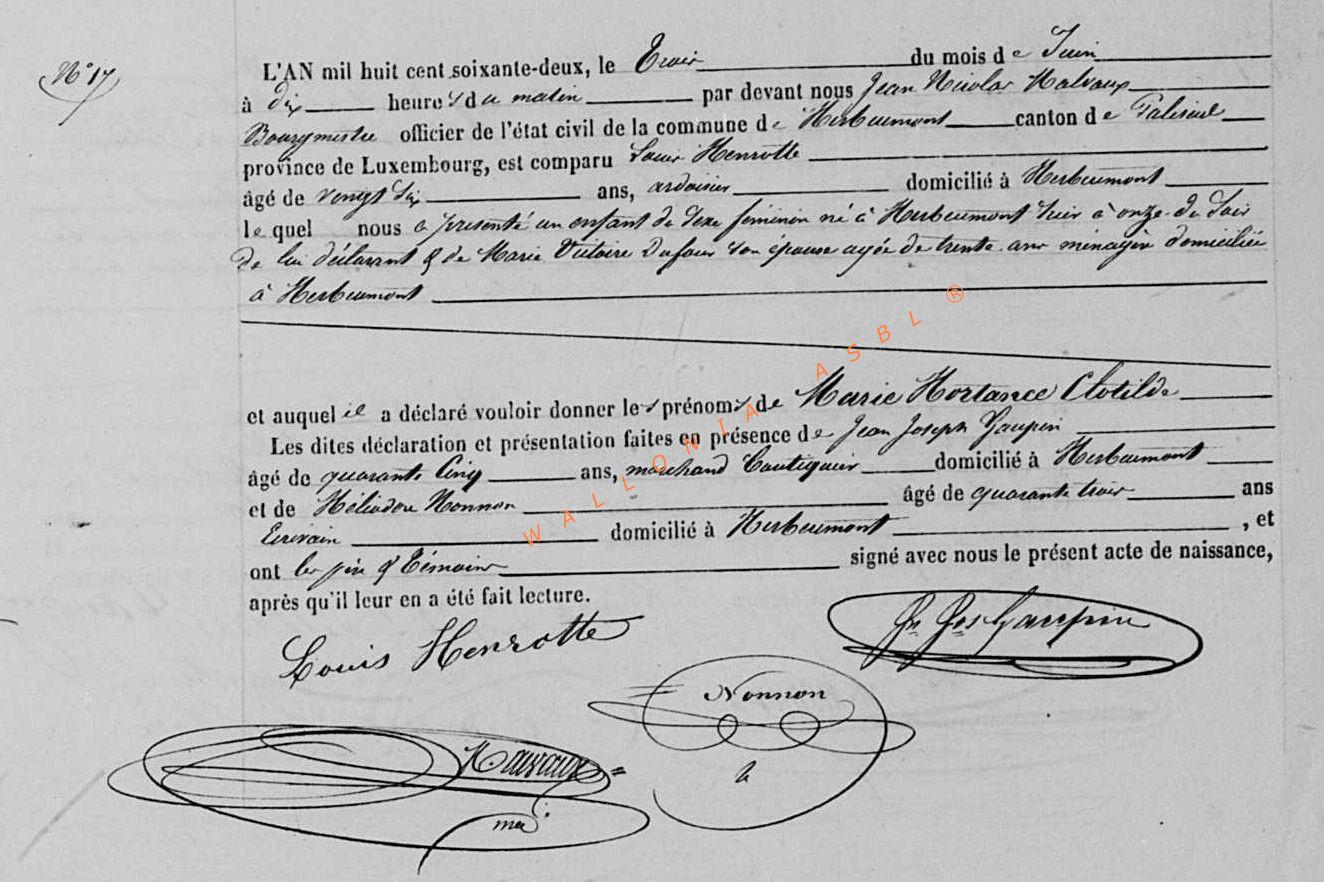 N° 17
L'AN mil huit cent soixante-deux, le Trois du mois de Juin
à dix heures du matin par devant nous Jean Nicolas Malvaux
Bourgmestre officier de l'état civil de la commune de Herbeumont canton de Paliseul
province de Luxembourg, est comparu Louis Henrotte
âgé de vingt six ans, ardoisier domicilié à Herbeumont
lequel nous a présenté un enfant de sexe feminin né à Herbeumont hier à onze du soir
de lui déclarant & de Marie Victoire Dufour son épouse agée de trente ans ménagère domiciliée
à Herbeumont
et auquel il a déclaré vouloir donner les prénoms de Marie Hortance Clotilde
Les dites déclaration et présentation faites en présence de Jean Joseph Gaupin
âgé de quarante cinq ans, marchand Boutiquier domicilié à Herbeumont
et de Héliodore Nonnon âgé de quarante trois ans
Ecrivain domicilié à Herbeumont , et
ont les père & Témoins signé avec nous le présent acte de naissance,
après qu'il leur en a été fait lecture.
Louis Henrotte
Jn Jos Gaupin
Nonnon
h
Malvaux
WALLONIA ASBL ®